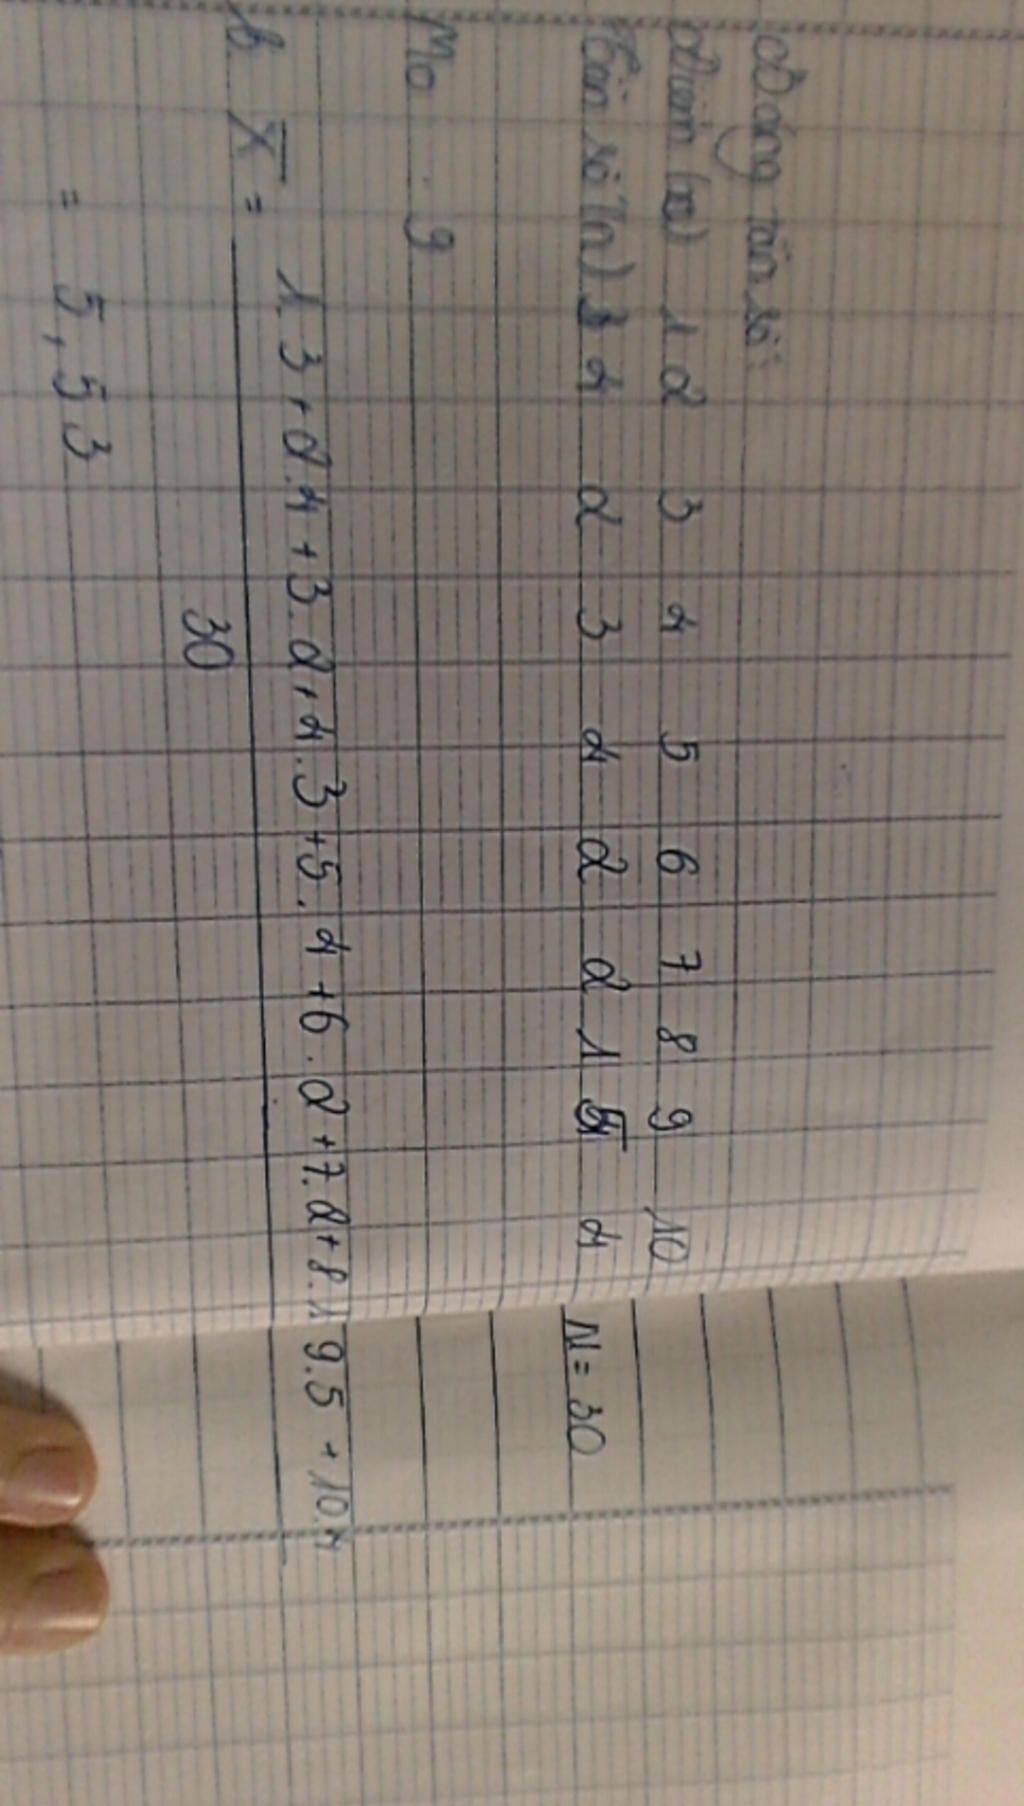 Bảng tần số:
Điểm (x) 1 2 3 4 5 6 7 8 9 10
Tần số (n) 3 4 2 3 4 2 2 1 5 4 N = 30
Mo 9
b. X̅ = 1.3 + 2.4 + 3.2 + 4.3 + 5.4 + 6.2 + 7.2 + 8.1 9.5 + 10.4
30
= 5,53